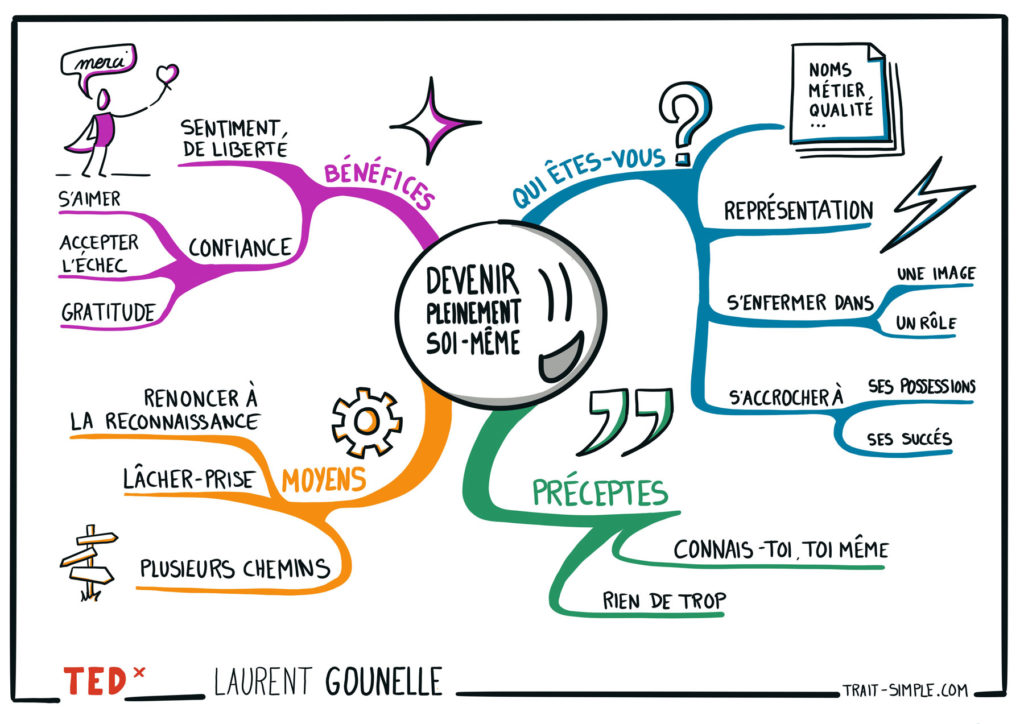 DEVENIR
PLEINEMENT
SOI-MÊME
QUI ÊTES-VOUS
NOMS
MÉTIER
QUALITÉ
...
REPRÉSENTATION
S'ENFERMER DANS
UNE IMAGE
UN RÔLE
S'ACCROCHER À
SES POSSESSIONS
SES SUCCÉS
PRÉCEPTES
CONNAIS-TOI, TOI MÊME
RIEN DE TROP
MOYENS
RENONCER À
LA RECONNAISSANCE
LÂCHER-PRISE
PLUSIEURS CHEMINS
BÉNÉFICES
merci
SENTIMENT,
DE LIBERTÉ
CONFIANCE
S'AIMER
ACCEPTER
L'ÉCHEC
GRATITUDE
TEDx
LAURENT GOUNELLE
TRAIT-SIMPLE.COM